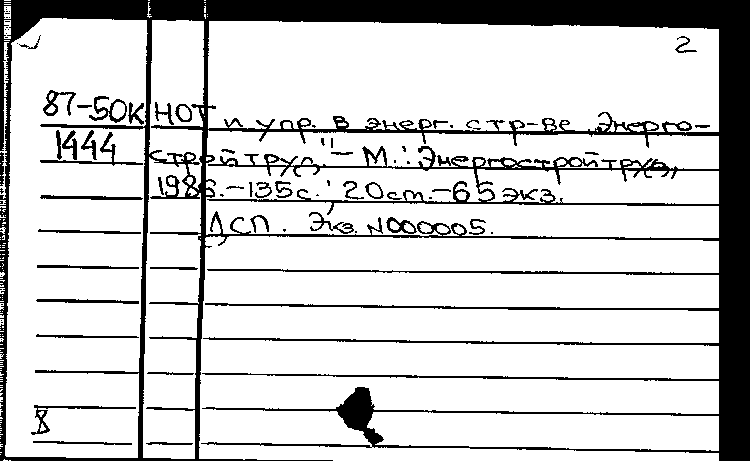 2
87-50К НОТ и упр. в энерг. стр-ве „Энерго-
1444 стройтруд".— М.: Энергостройтруд,
1986.-135с.; 20см.-65экз.
ДСП. Экз. N000005.